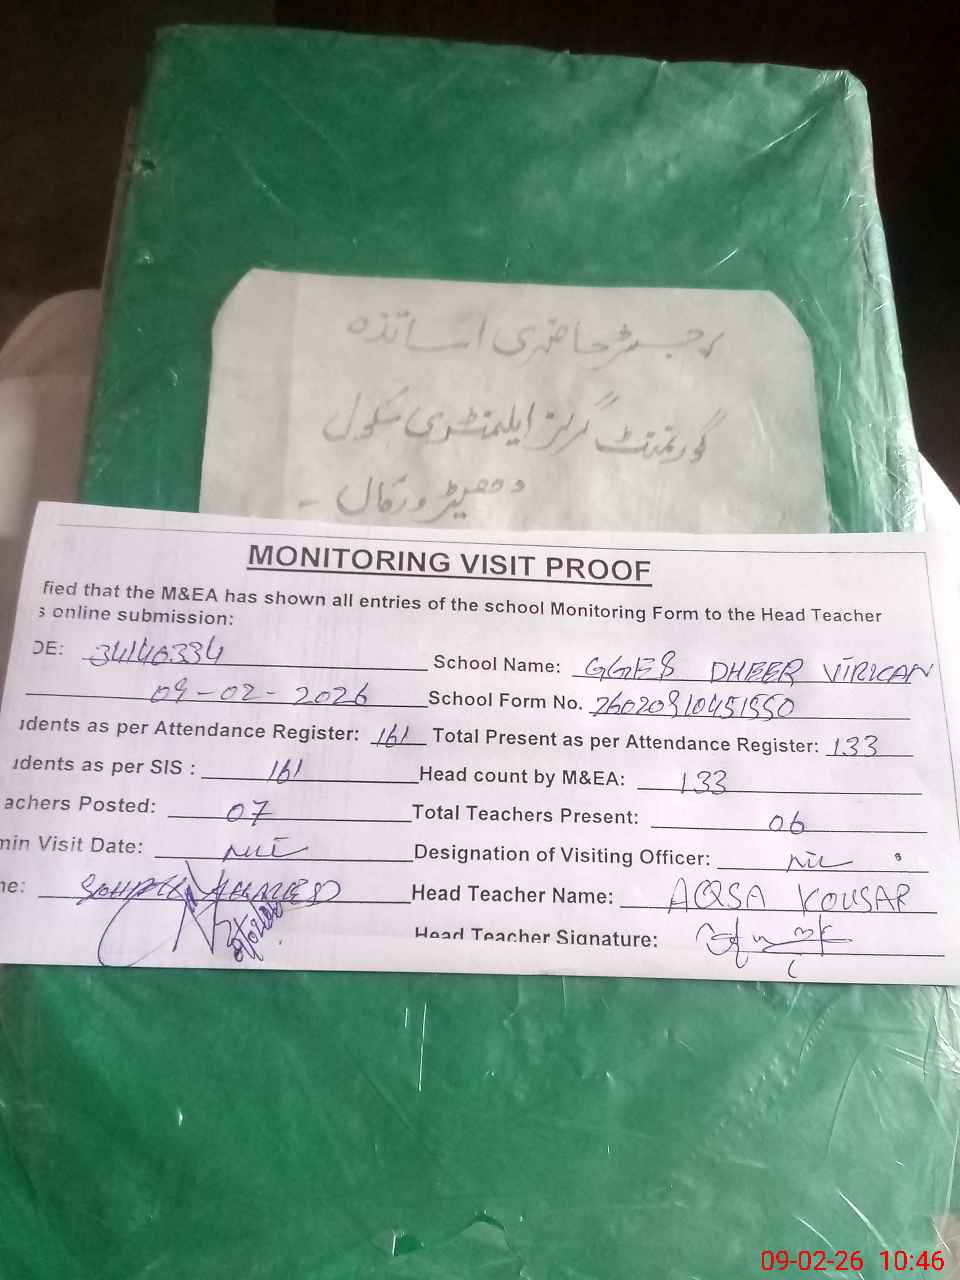 رجسٹر حاضری اساتذہ
گورنمنٹ گرلز ایلیمنٹری سکول
ورکاں -
MONITORING VISIT PROOF
fied that the M&EA has shown all entries of the school Monitoring Form to the Head Teacher
s online submission:
DE: 34140334 School Name: GGES DHEER VIRKAN
09-02-2026 School Form No.
idents as per Attendance Register: 161 Total Present as per Attendance Register: 133
idents as per SIS : 161 Head count by M&EA: 133
achers Posted: 07 Total Teachers Present: 06
min Visit Date: Nil Designation of Visiting Officer: Nil
ne: Head Teacher Name: AQSA KOUSAR
Head Teacher Signature:
09-02-26 10:46